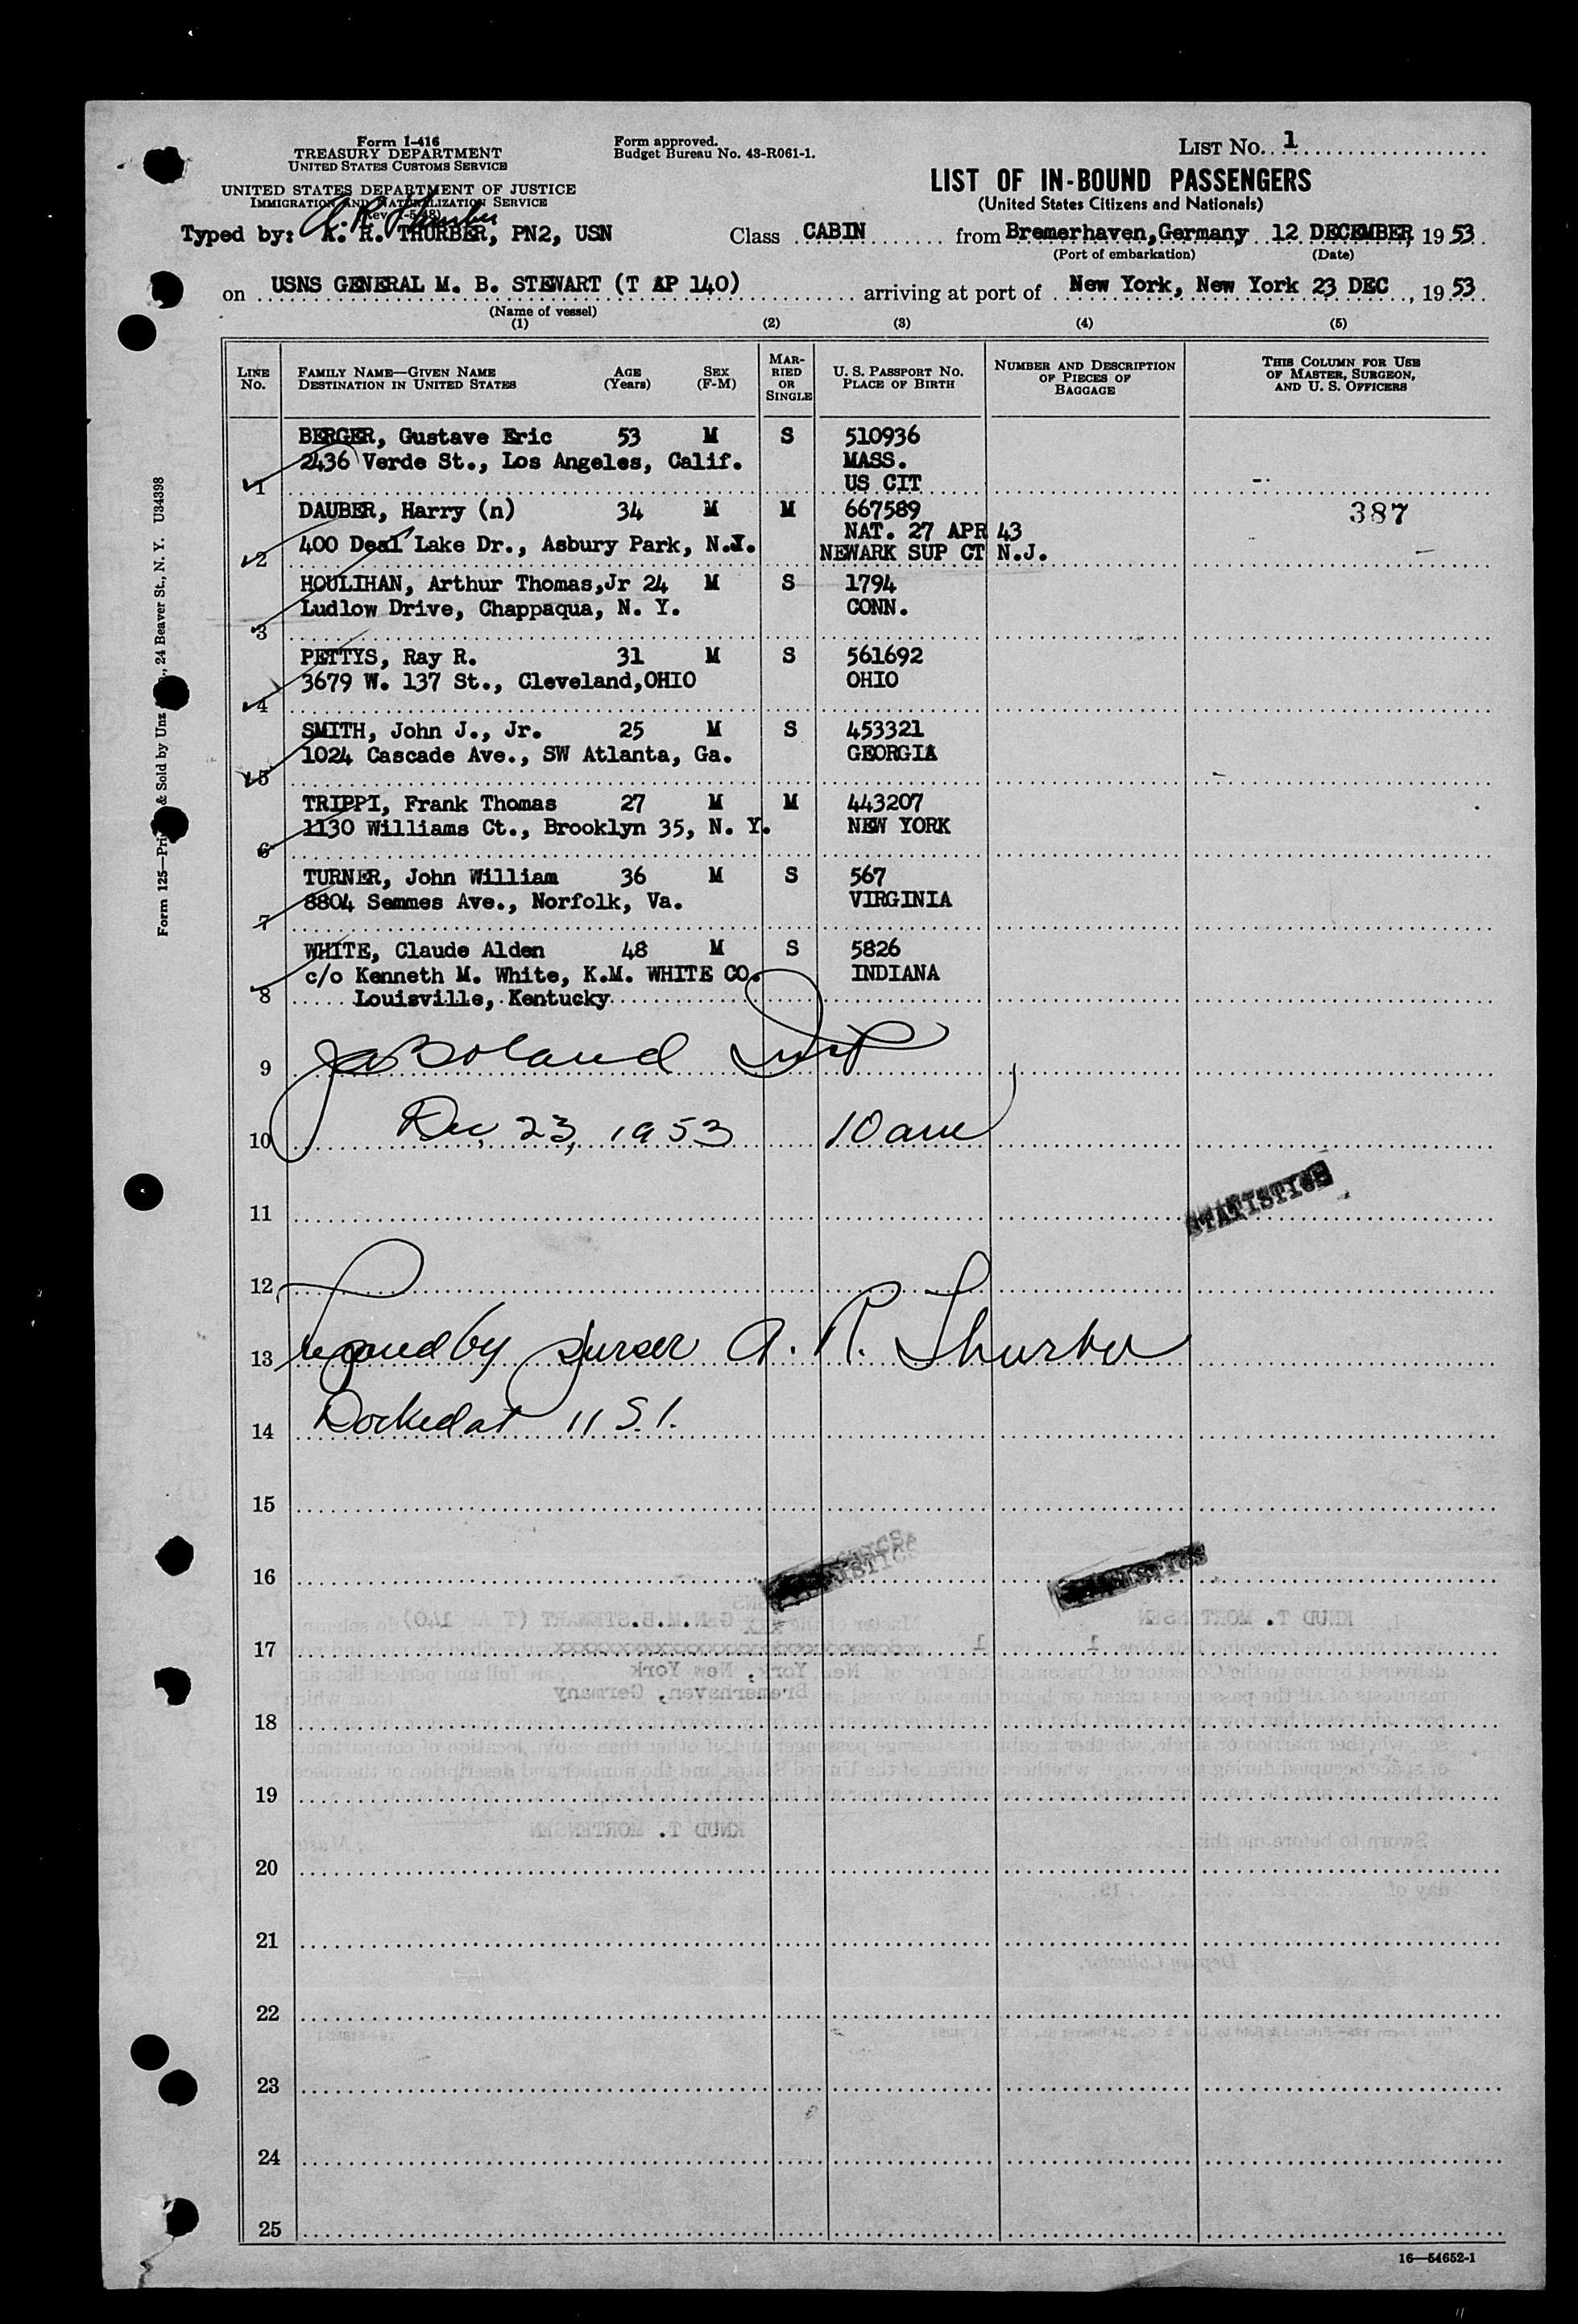 Form I-416
TREASURY DEPARTMENT
UNITED STATES CUSTOMS SERVICE
UNITED STATES DEPARTMENT OF JUSTICE
IMMIGRATION AND NATURALIZATION SERVICE
Form approved.
Budget Bureau No. 43-R061-1.
LIST No. 1
LIST OF IN-BOUND PASSENGERS
(United States Citizens and Nationals)
Typed by: A. R. THURBER, PN2, USN
Class CABIN from Bremerhaven, Germany 12 DECEMBER, 1953
(Port of embarkation) (Date)
on USNS GENERAL M. B. STEWART (T AP 140) arriving at port of New York, New York 23 DEC, 1953
(Name of vessel)
(1) (2) (3) (4) (5)
LINE No. FAMILY NAME—GIVEN NAME DESTINATION IN UNITED STATES AGE (Years) SEX (F-M) MARRIED OR SINGLE U. S. PASSPORT NO. PLACE OF BIRTH NUMBER AND DESCRIPTION OF PIECES OF BAGGAGE THIS COLUMN FOR USE OF MASTER, SURGEON, AND U. S. OFFICERS
BERGER, Gustave Eric 53 M S 510936
2436 Verde St., Los Angeles, Calif. MASS.
1 US CIT
DAUBER, Harry (n) 34 M M 667589
387
NAT. 27 APR 43
400 Deal Lake Dr., Asbury Park, N.J.
2 NEWARK SUP CT N.J.
HOULIHAN, Arthur Thomas, Jr 24 M S 1794
Ludlow Drive, Chappaqua, N. Y. CONN.
3
PETTYS, Ray R. 31 M S 561692
3679 W. 137 St., Cleveland, OHIO OHIO
4
SMITH, John J., Jr. 25 M S 453321
1024 Cascade Ave., SW Atlanta, Ga. GEORGIA
5
TRIPPI, Frank Thomas 27 M M 443207
1130 Williams Ct., Brooklyn 35, N. Y. NEW YORK
6
TURNER, John William 36 M S 567
8804 Semmes Ave., Norfolk, Va. VIRGINIA
7
WHITE, Claude Alden 48 M S 5826
c/o Kenneth M. White, K.M. WHITE CO. INDIANA
8 Louisville, Kentucky
9 JA Boland Insp
10 Dec, 23, 1953 10 am
11 STATISTICS
12
13 by purser A. R. Thurber
14 Docked at 11 S.I.
15
16 STATISTICS STATISTICS
17
18
19
20
21
22
23
24
25
16—54652-1
24 Beaver St., N. Y. U34398